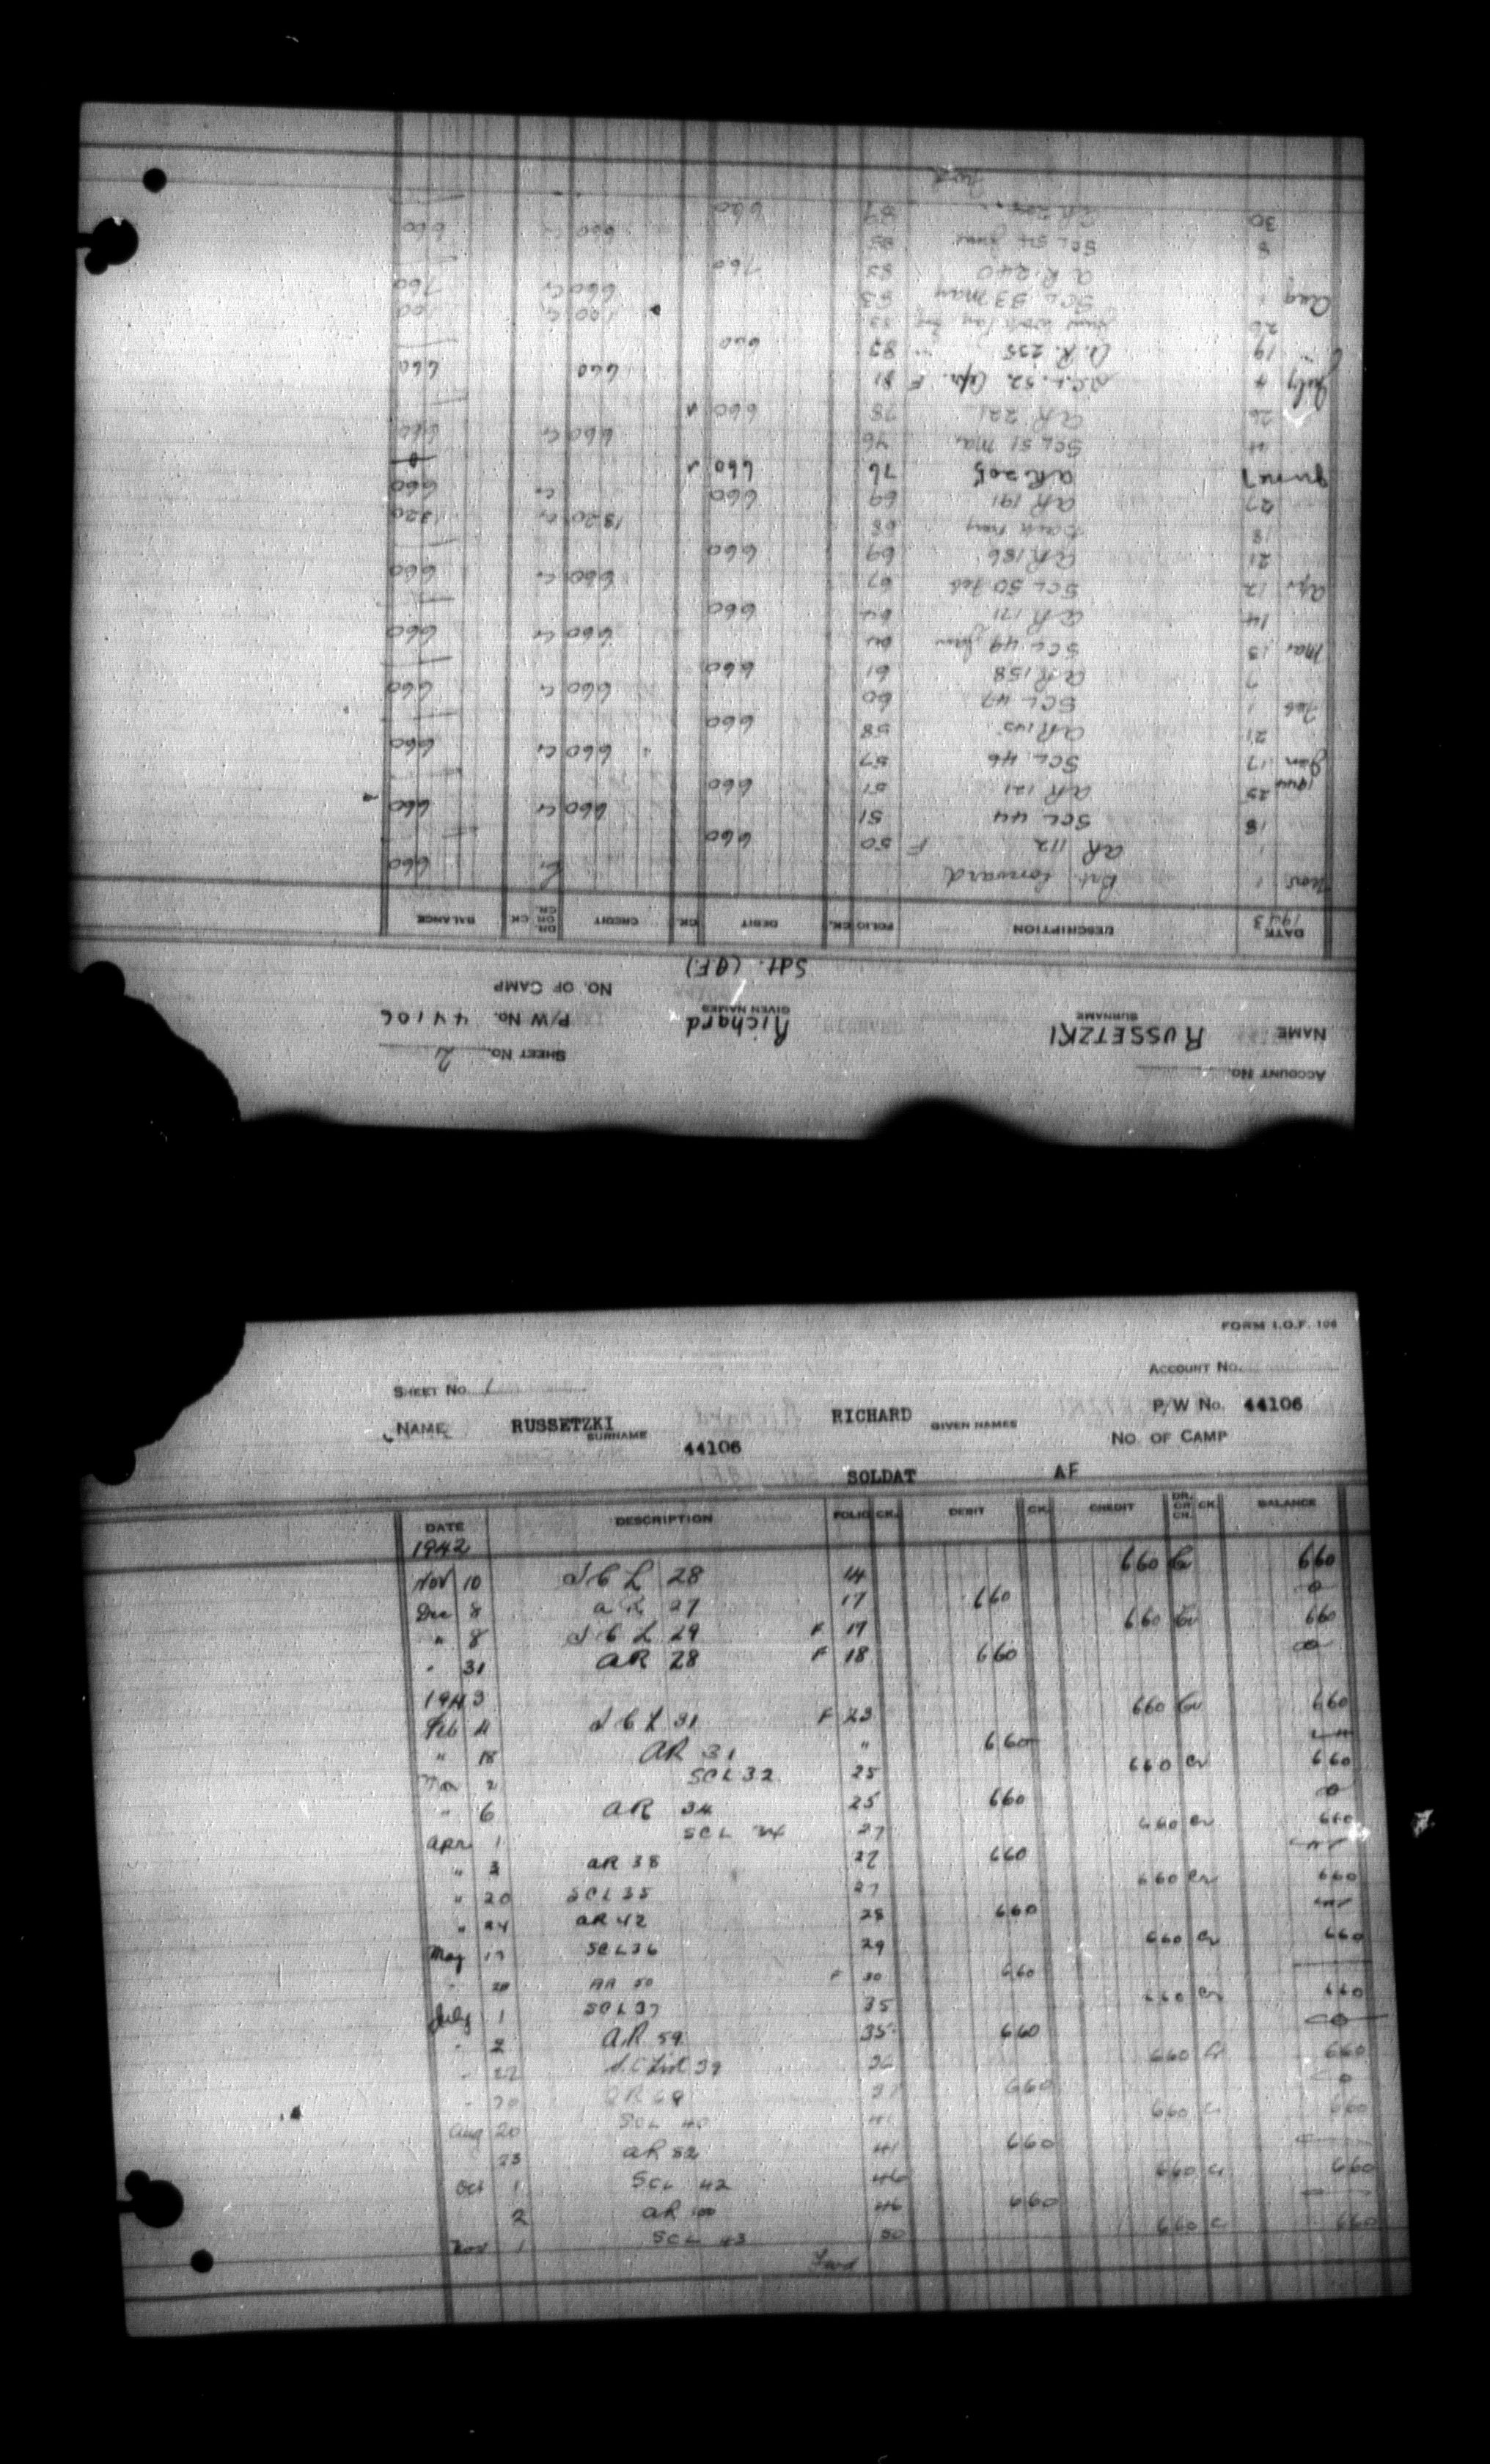 ACCOUNT No.
SHEET No. 2
NAME RUSSETZKI SURNAME Richard GIVEN NAMES P/W No. 44106
Sdt. (A.F.) NO. OF CAMP
DATE DESCRIPTION FOLIO CK. DEBIT CK. CREDIT DR. OR CR. CK BALANCE
1943
Nov 1 Bal. forward Cr 660
1 AR 112 F 50 660
18 SCL 44 51 660 Cr 660
25 AR 121 51 660
1944
Jan 17 SCL 46 57 660 Cr 660
21 AR 145 58 660
Feb 1 SCL 47 60 660 Cr 660
7 AR 158 61 660
Mar 13 SCL 49 Jan 64 660 Cr 660
14 AR 171 64 660
Apr 12 SCL 50 Feb 67 660 Cr 660
21 AR 186 69 660
18 Back Pay 68 1320 Cr 1320
27 AR 191 69 660 Cr 660
June 1 AR 205 76 660 0
4 SCL 51 Mar 76 660 Cr 660
26 AR 221 78 660
July 4 S.C.L. 52 Apr. F 81 660 660
" 19 A.R. 235 83 660
26 Work Pay 83 100 Cr 100
Aug 1 SCL 53 May 83 660 Cr 760
AR 240 85 760
8 SCL 54 June 85 660 Cr 660
30 AR 89 660
FORM I.O.F. 106
SHEET No. 1 ACCOUNT No.
NAME RUSSETZKI SURNAME RICHARD GIVEN NAMES P/W No. 44106
44106 NO. OF CAMP
SOLDAT AF
DATE DESCRIPTION FOLIO CK. DEBIT CK. CREDIT DR. OR CR. CK. BALANCE
1942
Nov 10 S C L 28 14 660 Cr 660
Dec 8 AR 27 17 660 0
" 8 S C L 29 F 17 660 Cr 660
" 31 AR 28 F 18 660 0
1943
Feb 4 S C L 31 F 23 660 Cr 660
" 18 AR 31 " 660
Mar 2 SCL 32 25 660 Cr 660
" 6 AR 34 25 660 0
Apr 1 SCL 34 27 660 Cr 660
" 3 AR 38 27 660
" 20 SCL 35 27 660 Cr 660
" 24 AR 42 28 660
May 17 SCL 36 29 660 Cr 660
" 20 AR 50 F 30 660
July 1 SCL 37 35 660 Cr 660
" 2 A.R. 59 35 660 0
" 22 S.C List 39 36 660 Cr 660
" 30 AR 69 37 660 0
Aug 20 SCL 40 41 660 Cr 660
23 AR 82 41 660
Oct 1 SCL 42 46 660 Cr 660
2 AR 100 46 660
Nov 1 SCL 43 50 660 Cr 660
Fwd